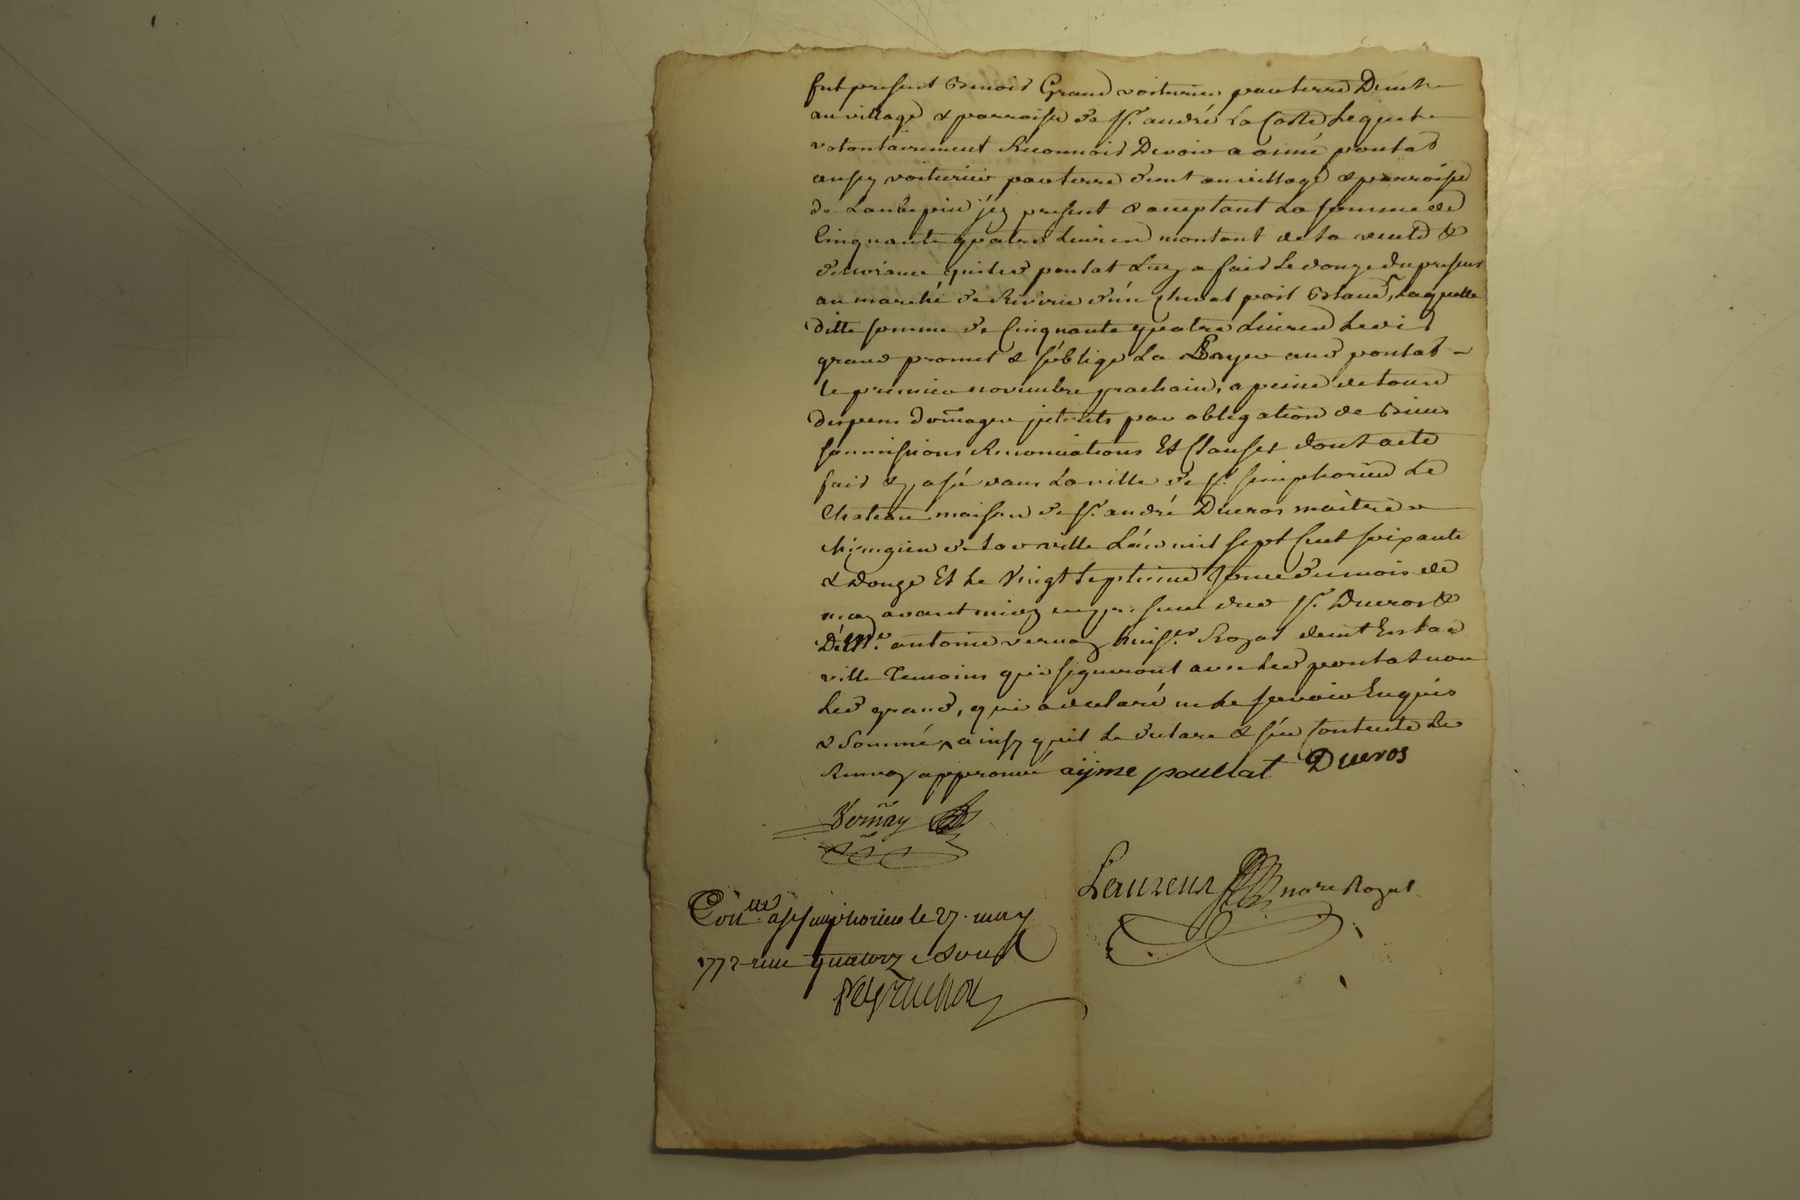 fut present Benoit Grand voiturier par terre Demt
au village & parroisse de St. andré La Coste Lequel
volontairement Reconnoit Devoir a aimé poulat
aussy voiturier par terre demt au village & parroisse
de Laubepin jcy present & aceptant La somme de
Cinquante quatre Livres montant de la vente &
delivrance que led poulat Luy a fait Le douze du present
au marché de Riverie d'un cheval poil Blanc, Laquelle
ditte somme de Cinquante quatre Livres Ledit
grand promet & s'oblige La Payer aud poulat
le premier novembre prochain, a peine de tous
depens domages jnterets par obligation de Biens
soumissions Renonciations Et Clauses dont acte
fait & passé dans La ville de St. simphorien Le
Chateau maison de Sr. andré Ducros maitre
chirurgien de lad ville L'an mil sept Cent soixante
& Douze Et Le vingt septieme Jour du mois de
may avant midy en presence dud Sr. Ducros &
De Me. antoine vernay huissr. Royal demt En lad
ville Temoins qui signeront avec led poulat non
Led grand, qui a declaré ne Le savoir Enquis
& sommé, ainsy qu'il Le declare & s'en Contente Le
Renvoy approuvé aijme poullat Ducros
Vernay
Laurens nore Royal
Conlle a st simphorien le 27 may
1772 reçu quatorze sous